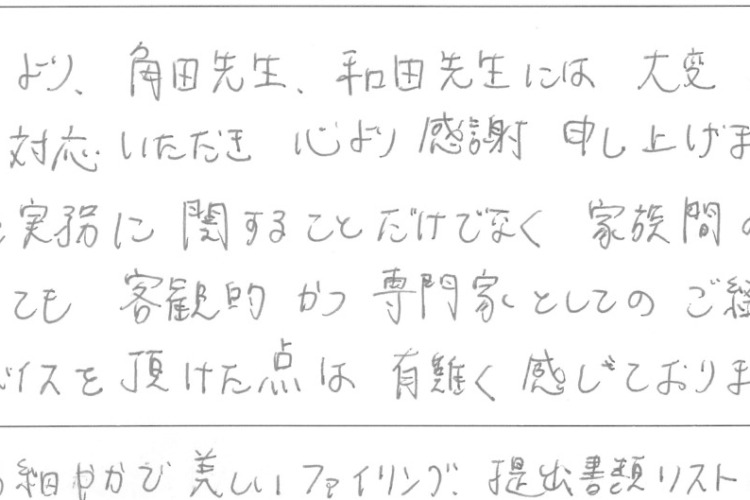 より、角田先生、和田先生には 大変
対応いただき 心より 感謝 申し上げま
実務に関することだけでなく 家族間の
ても 客観的 かつ 専門家としての ご経
バイスを頂けた点は 有難く感じておりま
細やかで美しいファイリング、提出書類リスト